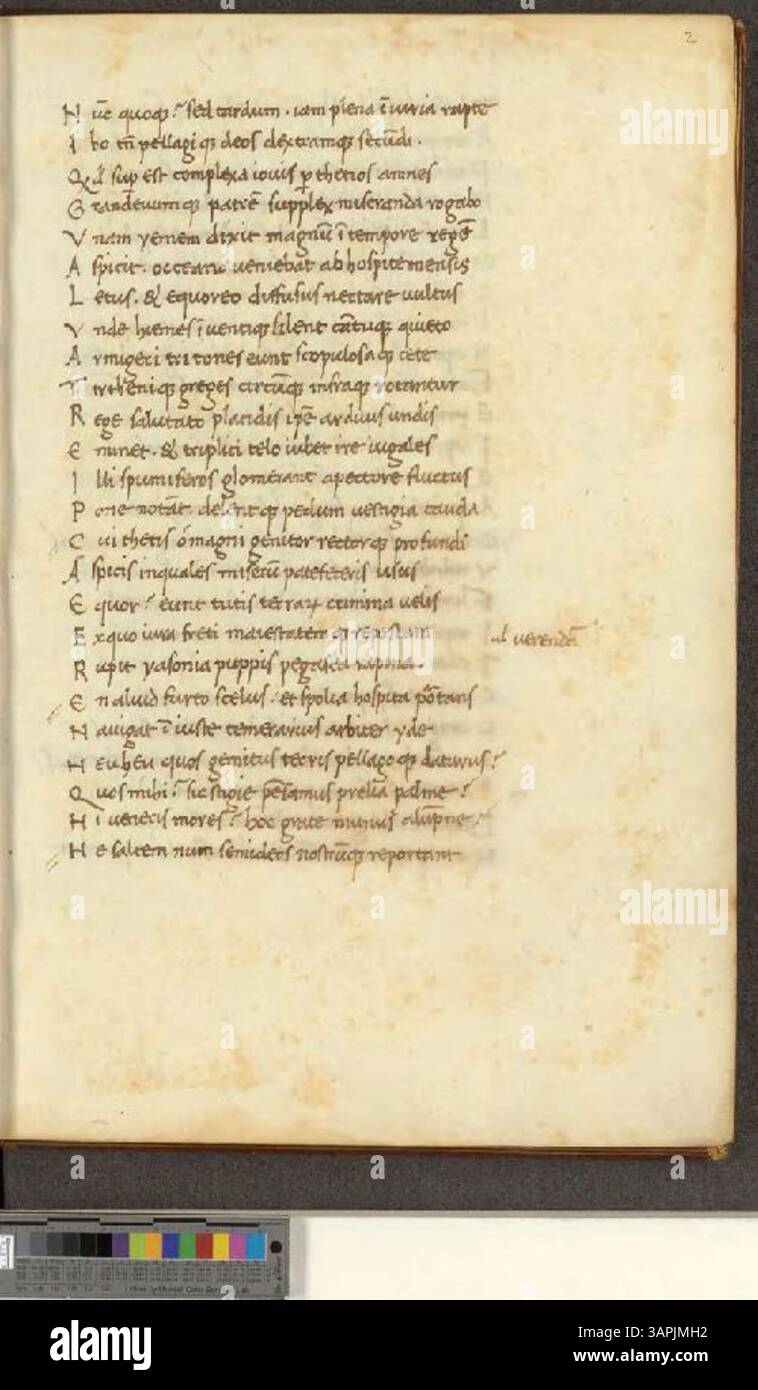 2
N ūc quoqꝫ? sed tardum. iam plena īiuria rapte
I bo tn̄ pellagiqꝫ deos dextramqꝫ secūdi.
Qd̄ sup est complexa iouis ꝑ thetios amnes
G randeuumqꝫ patrē supplex miseranda rogabo
V nam yemem dixit magnū ī tempore regē
A spicit. occeano ueniebat ab hospite mensis
L etus. & equoreo diffusus nectare uultus
V nde hiemes īuentiqꝫ silent cātuqꝫ quieto
A rmigeri tritones eunt scopulosaqꝫ cete
T irrheniqꝫ greges circūqꝫ infraqꝫ rotantur
R ege salutato placidis ip̄e arduus undis
E minet. & triplici telo iubet ire iugales
I lli spumiferos glomerant a pectore fluctus
P one notāt delentqꝫ pedum uestigia cauda
C ui thetis o magni genitor rectorqꝫ profundi
A spicis in quales miserū patefeceris usus
E quor? eunt tutis terraꝝ crimina uelis
E x quo iura freti maiestatem repostam
ul̄ verendā
R upit yasonia puppis pegasea rapina.
E n aliud furto scelus. et spolia hospita portans
N auigat īiuste temerarius arbiter yde
H eu heu quos gemitus terris pellagoqꝫ daturus?
Q uos mihi? sic frigie pensamus prelia palme?
H i veneris mores? hoc grate munus alūpne?
H e saltem num semideos nostrūqꝫ reportant
alamy
Image ID: 3APJMH2
www.alamy.com